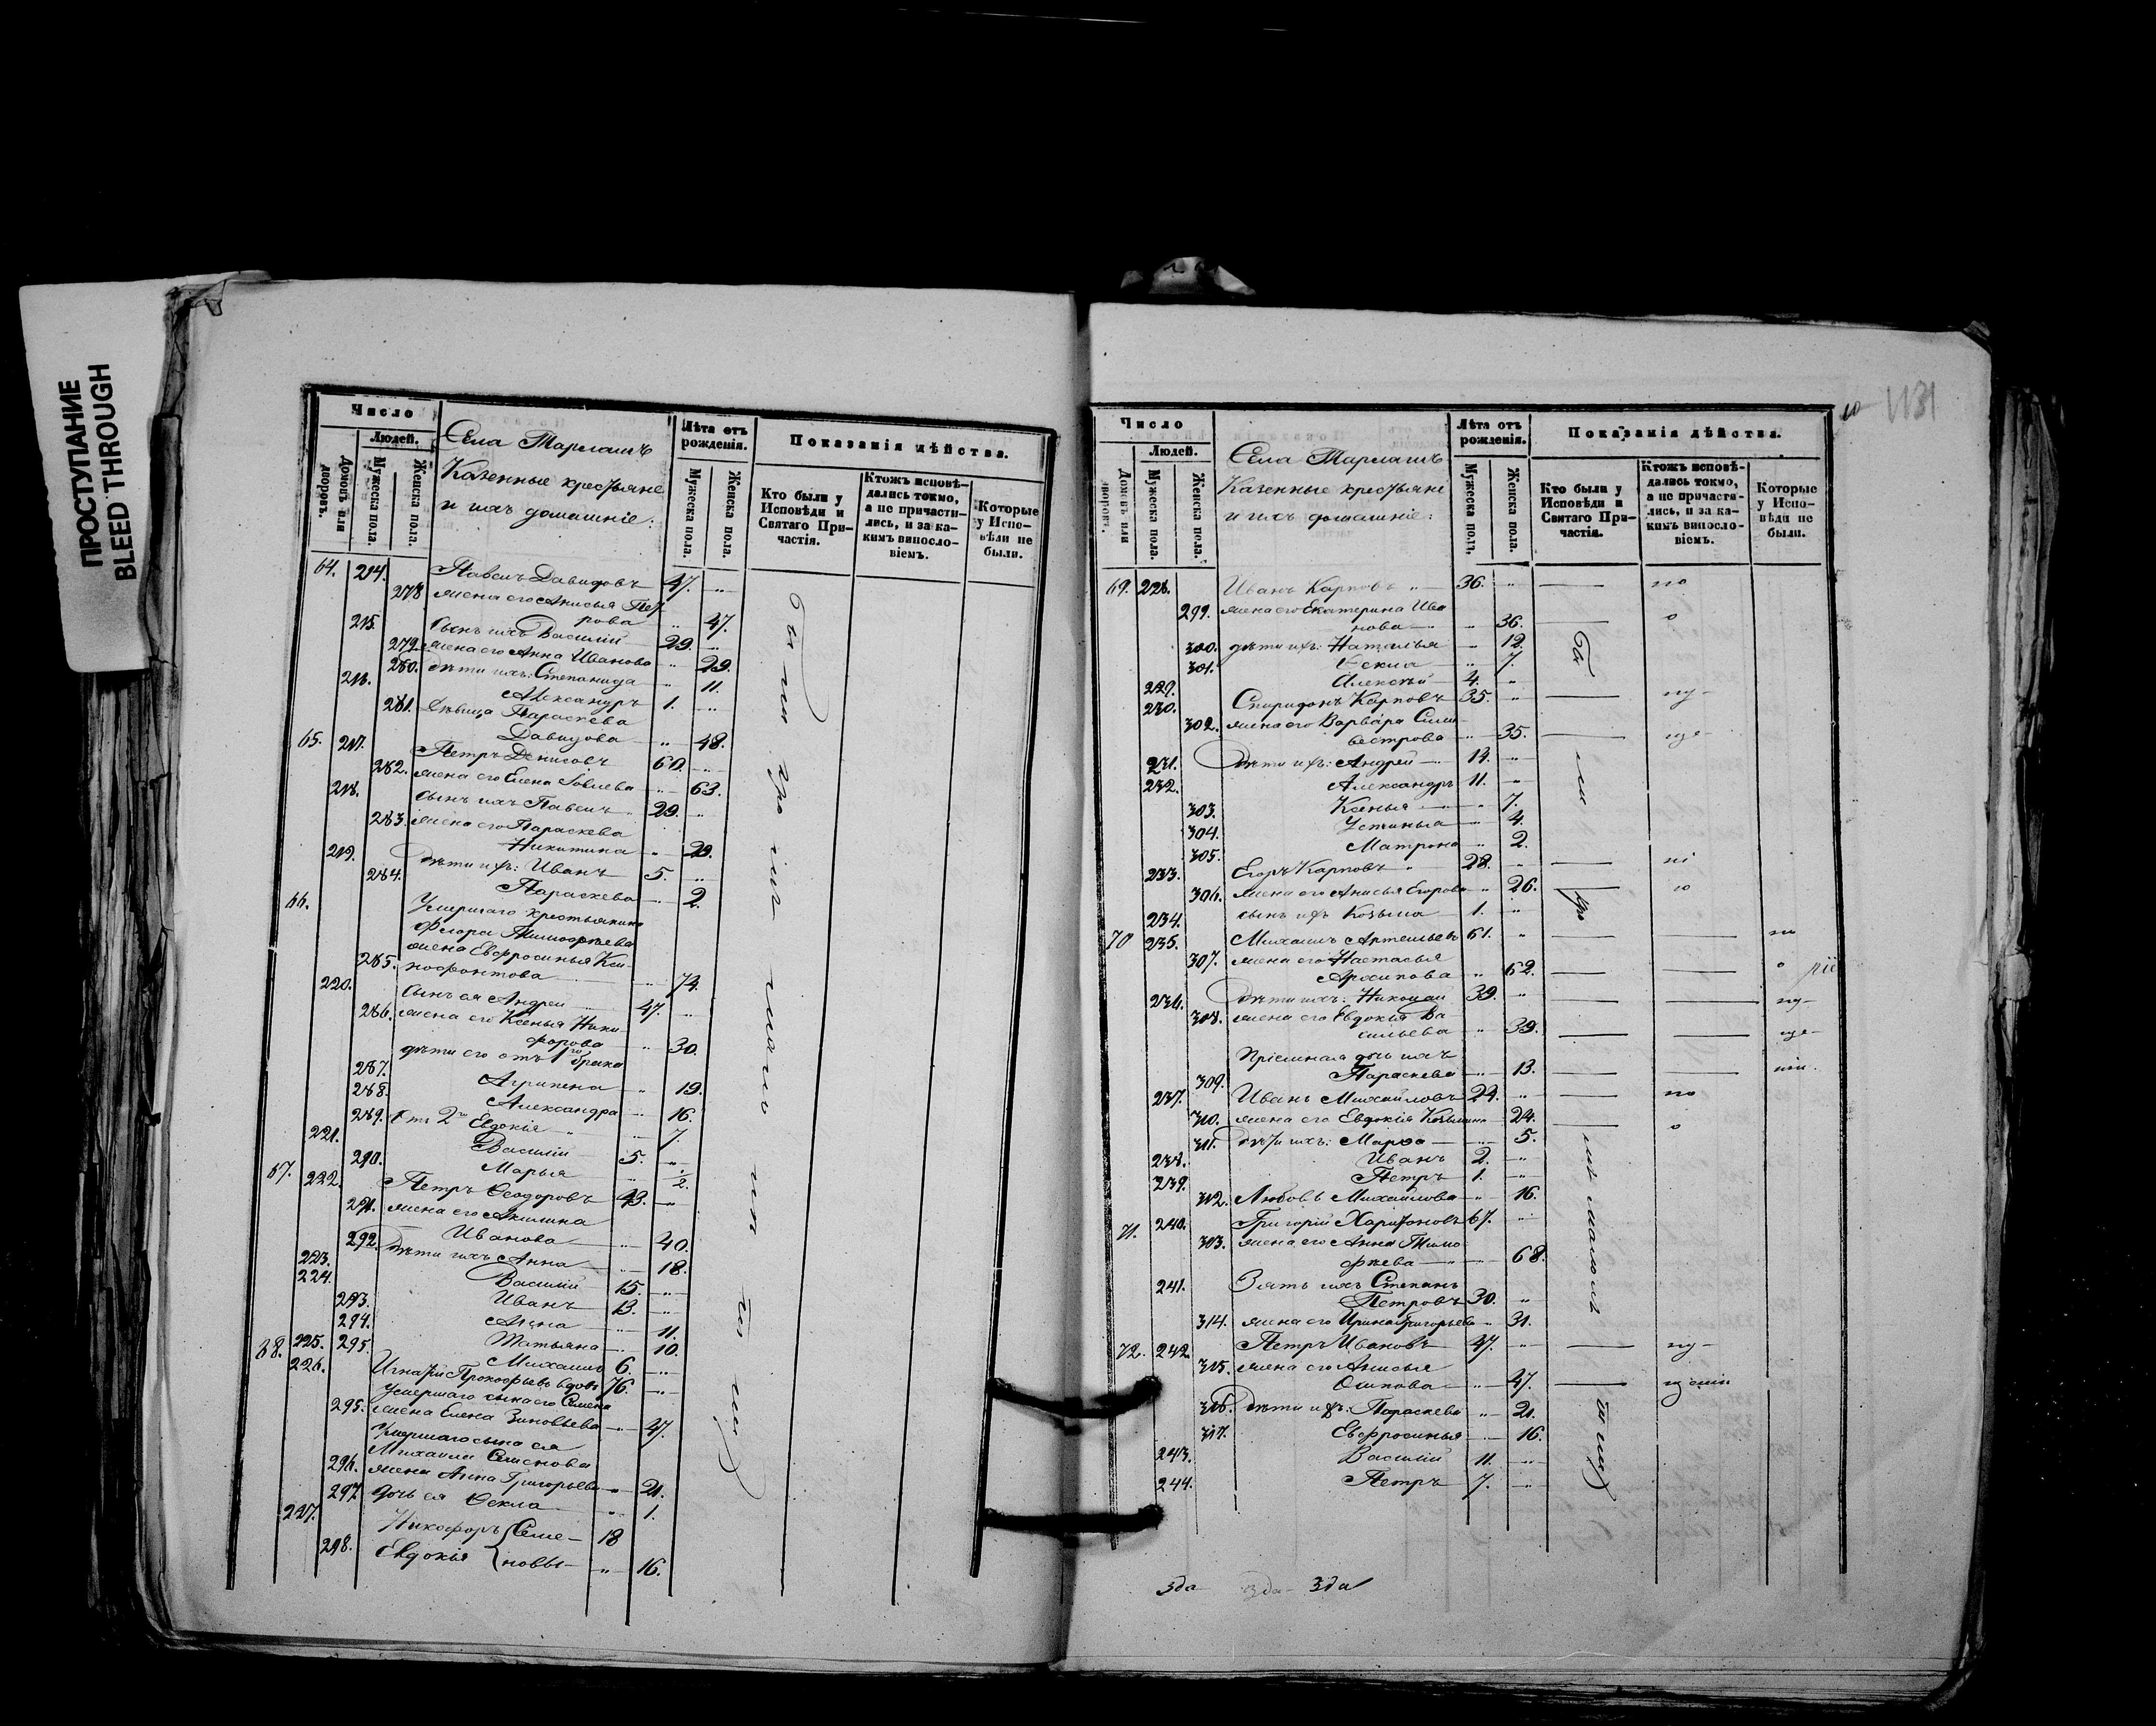 ПРОСТУПАНИЕ
BLEED THROUGH
Число
Людей.
Домовъ или дворовъ.
Мужеска пола.
Женска пола.
Села Тарлашъ
Казенные крестьяне
и ихъ домашніе:
Лѣта отъ рожденія.
Мужеска пола.
Женска пола.
Показанія дѣйства.
Кто были у Исповѣди и Святаго Причастія.
Ктожъ исповѣдались токмо, а не причастились, и за какимъ винословіемъ.
Которые у Исповѣди не были.
64. 214. Павелъ Давидовъ 47. "
278. жена его Анисья Пет-
рова " 47.
215. Сынъ ихъ Василій 29. "
279. жена его Анна Иванова " 29.
280. дѣти ихъ: Степанида " 11.
216. Александръ 1. "
281. Дѣвица Параскева
Давидова " 48.
65. 217. Петръ Денисовъ 60. "
282. жена его Елена " 63.
218. сынъ ихъ Павелъ 29. "
283. жена его Параскева
Никитина " 29.
219. дѣти ихъ: Иванъ 5. "
284. Параскева " 2.
66. Умершаго крестьянина
Флора Тимофѣева
жена Евфросинья Ксе-
285. нофонтова " 74.
220. Сынъ ея Андрей 47. "
286. жена его Ксенья Ники-
форова " 30.
дѣти его отъ 1го брака
287. Агрипена " 19.
288. Александра " 16.
289. Отъ 2го Евдокія " 7.
221. Василій 5. "
290. Марья " 1/2.
67. 222. Петръ Ѳеодоровъ 43. "
291. жена его Акилина
Иванова " 40.
292. Дѣти ихъ Анна " 18.
223. Василій 15. "
224. Иванъ 13. "
293. Анна " 11.
294. Татьяна " 10.
225. 295. Михаилъ 6. "
68. 226. Игнатій Прокофьевъ вдовъ 76. "
Умершаго сына его Семена
295. жена Елена Зиновьева " 47.
Умершаго сына ея
Михаила Семенова
296. жена Анна Григорьева " 21.
297. дочь ея Ѳекла " 1.
227. Никофоръ Семе- 18
298. Евдокія новы " 16.
Число
Людей.
Домовъ или дворовъ.
Мужеска пола.
Женска пола.
Села Тарлашъ
Казенные крестьяне
и ихъ домашніе:
Лѣта отъ рожденія.
Мужеска пола.
Женска пола.
Показанія дѣйства.
Кто были у Исповѣди и Святаго Причастія.
Ктожъ исповѣдались токмо, а не причастились, и за какимъ винословіемъ.
Которые у Исповѣди не были.
1131
69. 228. Иванъ Карповъ " 36. "
299. жена его Екатерина Ива
нова " 36.
300. дѣти ихъ: Наталья " 12.
301. Ѳекла " 7.
229. Алексѣй 4. "
230. Спиридонъ Карповъ 35. "
302. жена его Варвара Силь-
вестрова " 35.
231. Дѣти ихъ: Андрей 14. "
232. Александръ 11. "
303. Ксенья " 7.
304. Устинья " 4.
305. Матрона " 2.
233. Егоръ Карповъ 28. "
306. жена его Анисья Егорова " 26.
234. сынъ ихъ Козьма 1. "
70 235. Михаилъ Артемьевъ 61. "
307. жена его Настасья
Архипова " 62.
236. Дѣти ихъ: Николай 39. "
308. жена его Евдокія Ва
сильева " 39.
Пріемная дочь ихъ
309. Параскева " 13.
237. Иванъ Михайловъ 24. "
310. жена его Евдокія Козьмина 24.
311. Дѣти ихъ: Марѳа " 5.
238. Иванъ 2. "
239. Петръ 1. "
312. Любовь Михайлова " 16.
71. 240. Григорій Харитоновъ 67. "
303. жена его Анна Тимо
фѣева " 68.
241. Зять ихъ Степанъ
Петровъ 30. "
314. жена его Ирина Григорьева " 31.
72. 242. Петръ Ивановъ 47. "
315. жена его Анисья
Осипова " 47.
316. Дѣти ихъ: Параскева " 21.
317. Евфросинья " 16.
243. Василій 11. "
244. Петръ 7. "